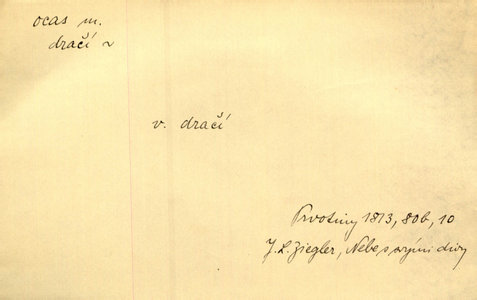 ocas m.
dračí ~
v. dračí
Prvotiny 1813, 80b, 10
J. L. Ziegler, Nebe s svými divy